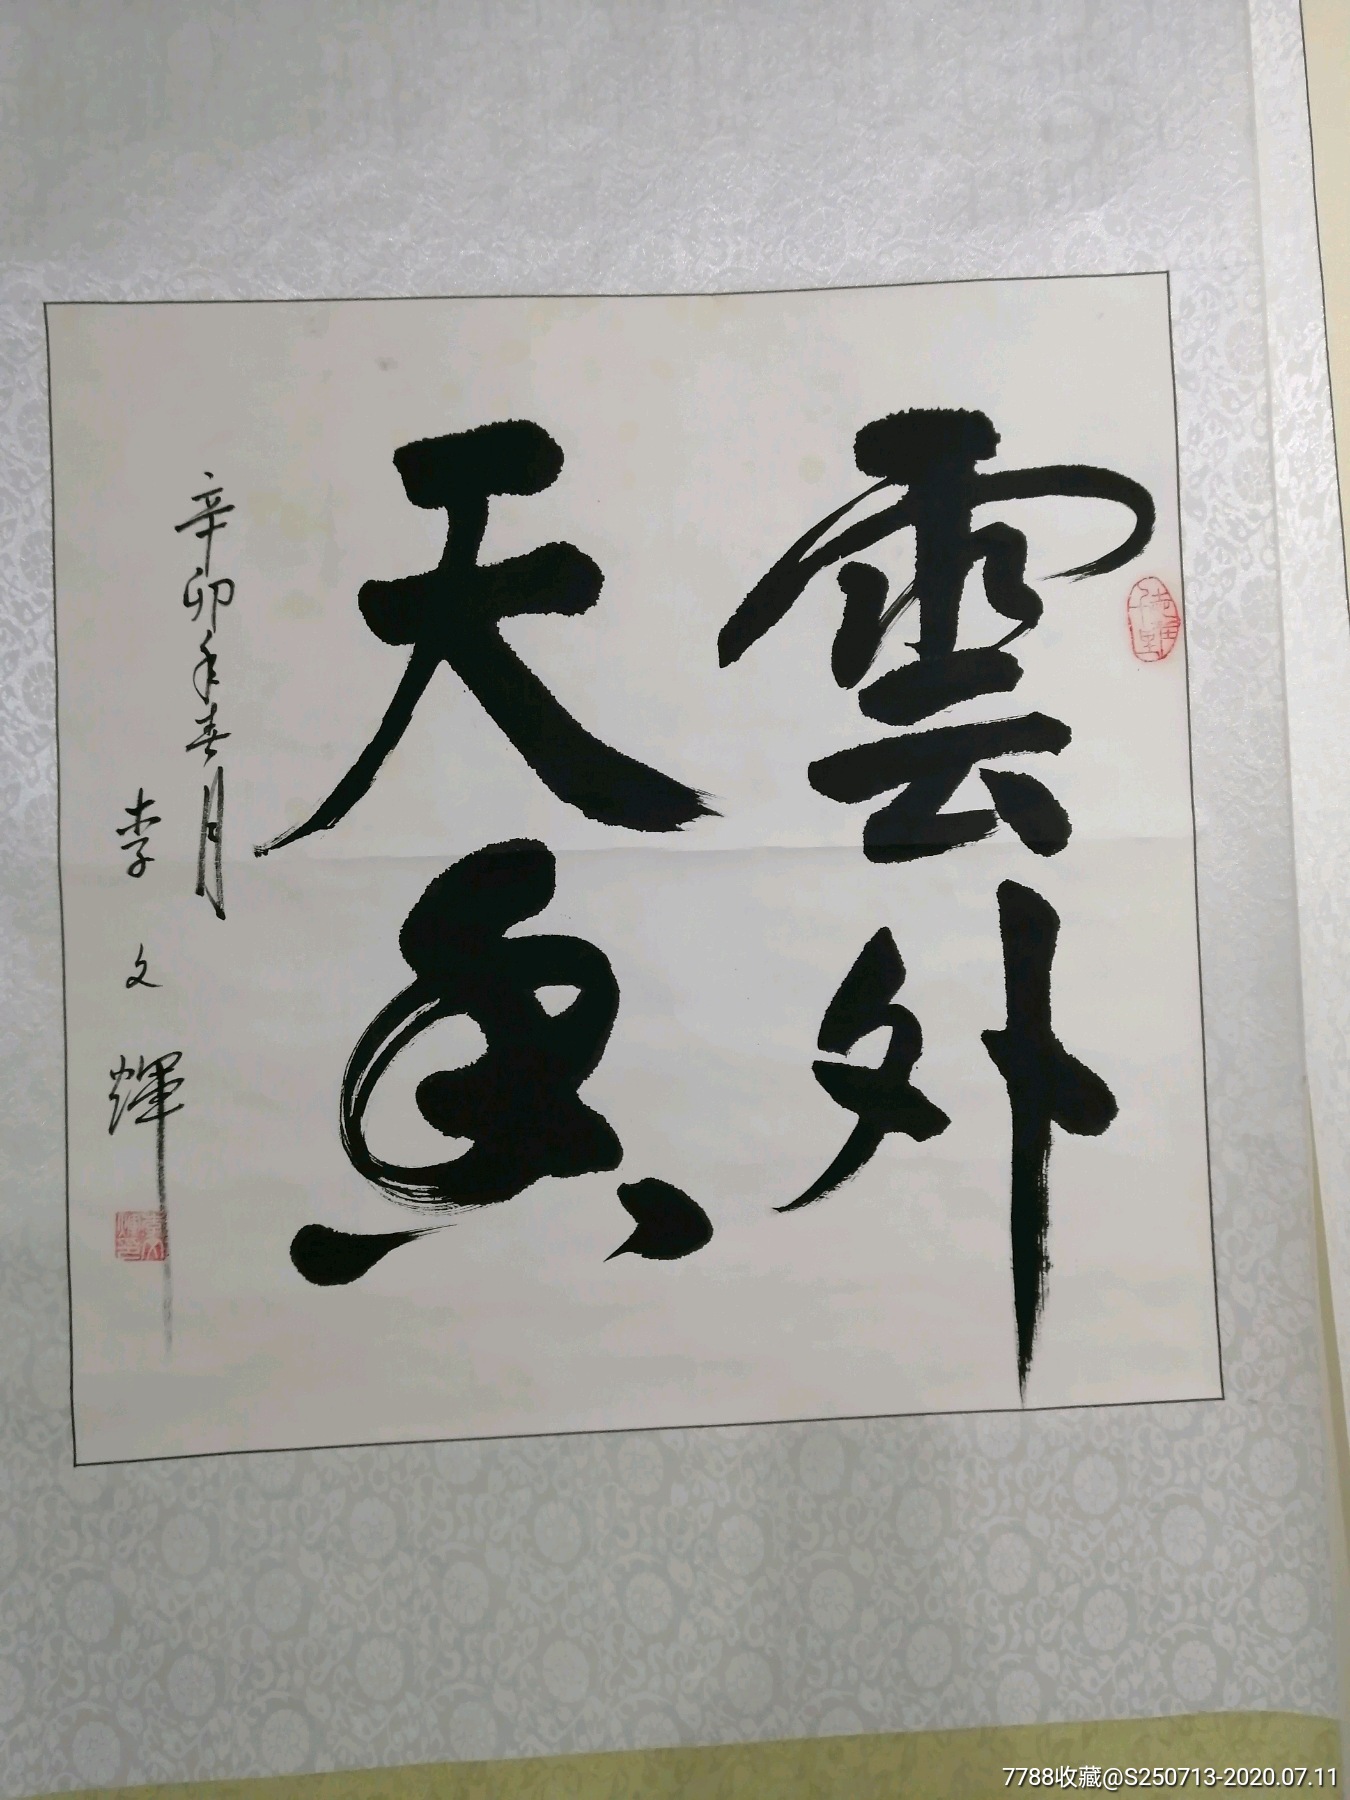 雲外
天香
辛卯年春月
李文輝
7788收藏@S250713-2020.07.11